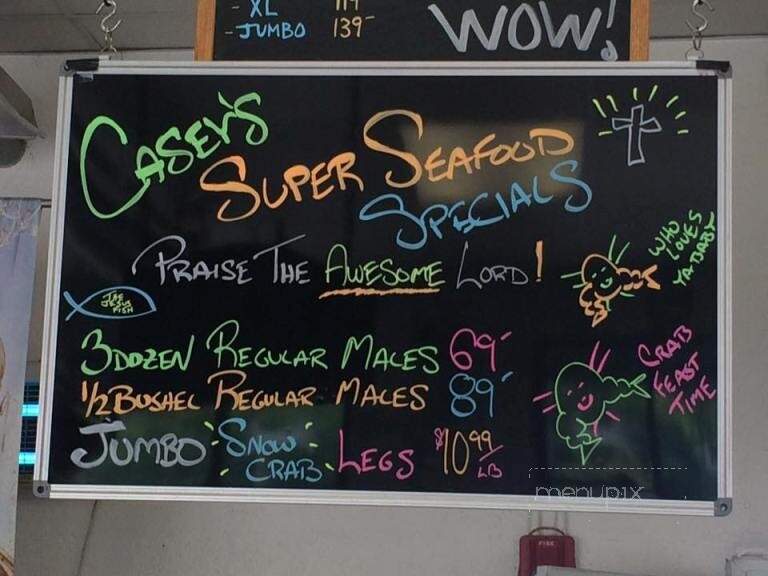 - XL 119
- JUMBO 139-
WOW!
CASEY'S
SUPER SEAFOOD
SPECIALS
PRAISE THE AWESOME LORD!
WHO
LOVES
YA BABY
THE
JESUS
FISH
3 DOZEN REGULAR MALES 69-
1/2 BUSHEL REGULAR MALES 89-
CRAB
FEAST
TIME
JUMBO SNOW
CRAB LEGS $10.99/LB
menupix
FIRE